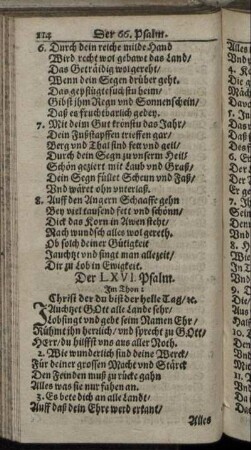 214 Der 66. Psalm.
6. Durch dein reiche milde Hand
Wird recht wol gebawt das Land/
Das Geträidig wolgereht/
Wenn dein Segen drüber geht.
Gibst jhm Regn vnd Sonnenschein/
Daß es fruchtbarlich gedey.
7. Mit deim Gut krönstu das Jahr/
Dein Fußstapffen trieffen gar/
Berg vnd Thal sind fett vnd geil/
Durch dein Segn zu vnserm Heil/
Schön geziert mit Laub vnd Graß/
Dein Segn füllet Scheun vnd Faß/
Vnd wäret ohn vnterlaß.
8. Auff den Angern Schaaffe gehn
Bey viel tausend fett vnd schönn/
Dick das Korn in Awen steht/
Nach wundsch alles wol gereth.
Ob solch deiner Gütigkeit
Jauchtzt vnd singt man allezeit/
Dir zu Lob in Ewigkeit.
Der LXVI. Psalm.
Im Thon:
Christ der du bist der helle Tag/etc.
JAuchtzet Gott alle Lande sehr/
Lobsingt vnd gebt seim Namen Ehr/
Rühmt jhn herrlich/ vnd sprecht zu GOtt/
HErr/ du hilffst vns auß aller Noth.
2. Wie wunderlich sind deine Werck/
Für deiner grossen Macht vnd Stärck
Den Feinden muß zu rücke gahn
Alles was sie nur fahen an.
3. Es bete dich an alle Landt/
Auff daß dein Ehre werd erkant/
Alles